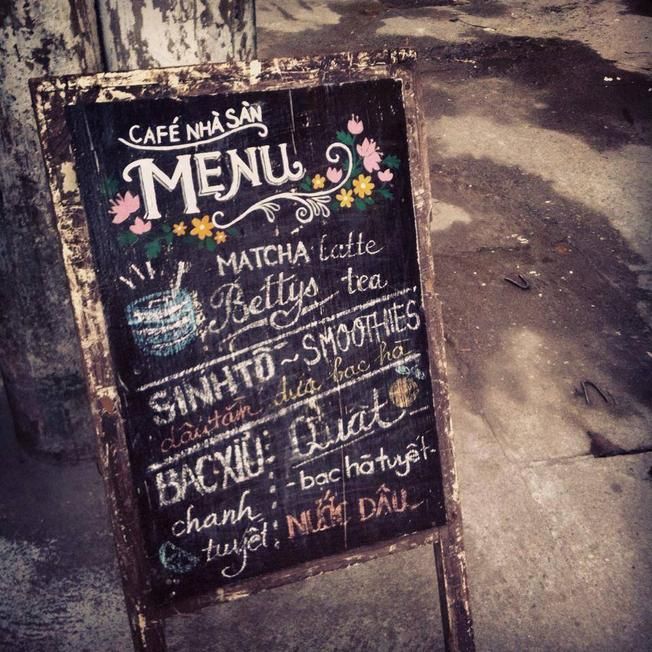 CAFÉ NHÀ SÀN
MENU
MATCHA latte
Bettys tea
SINH TỐ ~ SMOOTHIES
dâu tằm dứa bạc hà
BẠC XỈU:
chanh
tuyết
Quất
- bạc hà tuyết -
NƯỚC DÂU